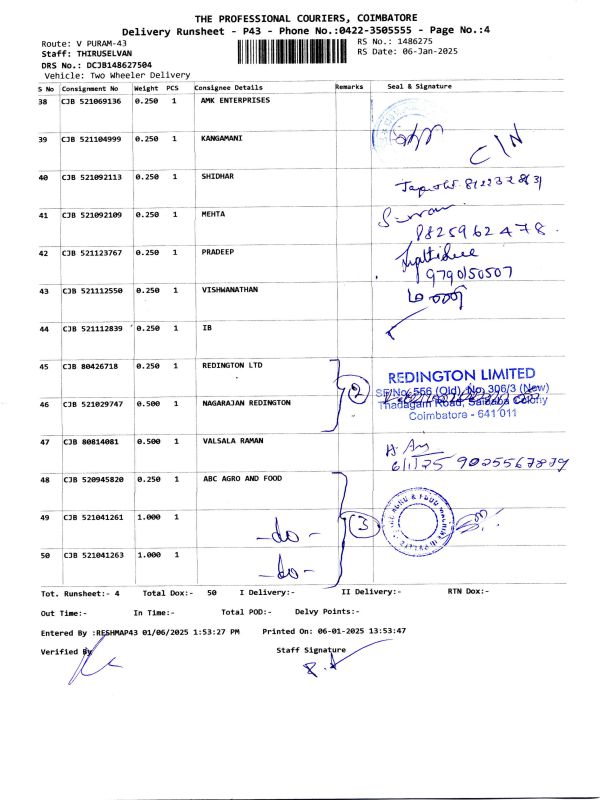 THE PROFESSIONAL COURIERS, COIMBATORE
Delivery Runsheet - P43 - Phone No.:0422-3505555 - Page No.:4
Route: V PURAM-43
RS No.: 1486275
Staff: THIRUSELVAN
RS Date: 06-Jan-2025
DRS No.: DCJB148627504
Vehicle: Two Wheeler Delivery
S No Consignment No Weight PCS Consignee Details Remarks Seal & Signature
38 CJB 521069136 0.250 1 AMK ENTERPRISES
39 CJB 521104999 0.250 1 KANGAMANI
C/N
40 CJB 521092113 0.250 1 SHIDHAR
41 CJB 521092109 0.250 1 MEHTA
9825962478
42 CJB 521123767 0.250 1 PRADEEP
9790150507
43 CJB 521112550 0.250 1 VISHWANATHAN
44 CJB 521112839 0.250 1 IB
45 CJB 80426718 0.250 1 REDINGTON LTD
2
REDINGTON LIMITED
SF.No. 556 (Old), No. 306/3 (New)
46 CJB 521029747 0.500 1 NAGARAJAN REDINGTON
Thadagam Road, Saibaba Colony
Coimbatore - 641 011
47 CJB 80814081 0.500 1 VALSALA RAMAN
6/1/25 9025567879
48 CJB 520945820 0.250 1 ABC AGRO AND FOOD
49 CJB 521041261 1.000 1
-do-
3
50 CJB 521041263 1.000 1
-do-
Tot. Runsheet:- 4 Total Dox:- 50 I Delivery:- II Delivery:- RTN Dox:-
Out Time:- In Time:- Total POD:- Delvy Points:-
Entered By :RESHMAP43 01/06/2025 1:53:27 PM Printed On: 06-01-2025 13:53:47
Verified By
Staff Signature